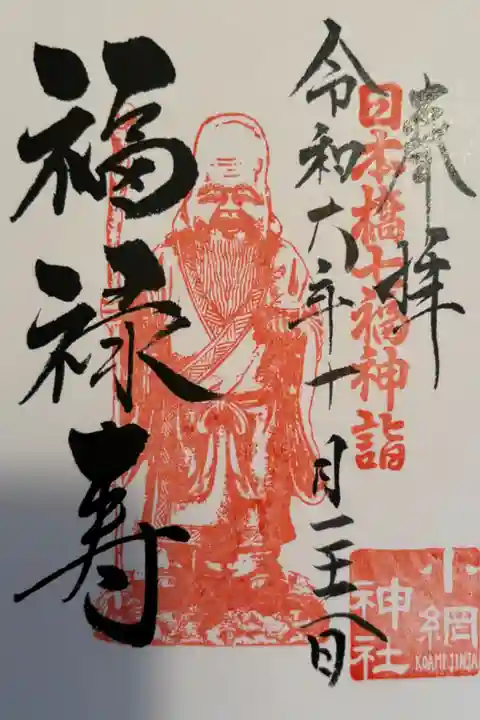 奉拝
日本橋七福神詣
令和六年十月二十八日
福禄寿
小網
神社
KOAMI JINJA